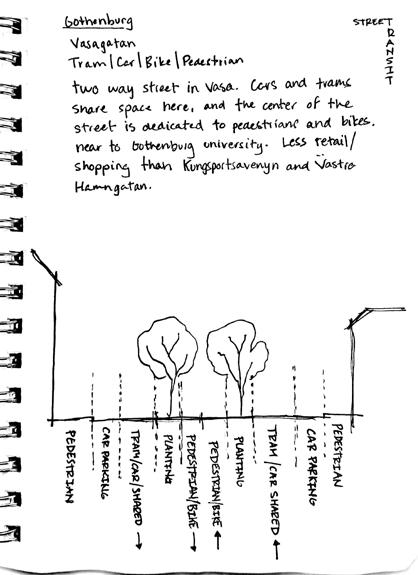 Gothenburg
STREET
TRANSIT
Vasagatan
Tram/Car/Bike/Pedestrian
two way street in Vasa. Cars and trams
share space here, and the center of the
street is dedicated to pedestrians and bikes.
near to Gothenburg university. Less retail/
shopping than Kungsportsavenyn and Västra
Hamngatan.
PEDESTRIAN
CAR PARKING
TRAM/CAR/SHARED →
PLANTING
PEDESTRIAN/BIKE →
PEDESTRIAN/BIKE ←
PLANTING
TRAM/CAR SHARED ←
CAR PARKING
PEDESTRIAN